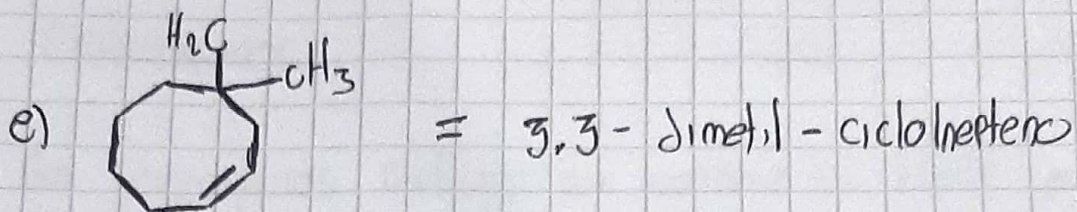 H₂C
CH₃
e) = 3,3- dimetil - ciclohepteno